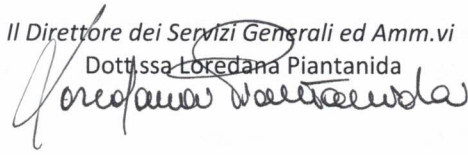 Il Direttore dei Servizi Generali ed Amm.vi
Dott.ssa Loredana Piantanida
Loredana Piantanida